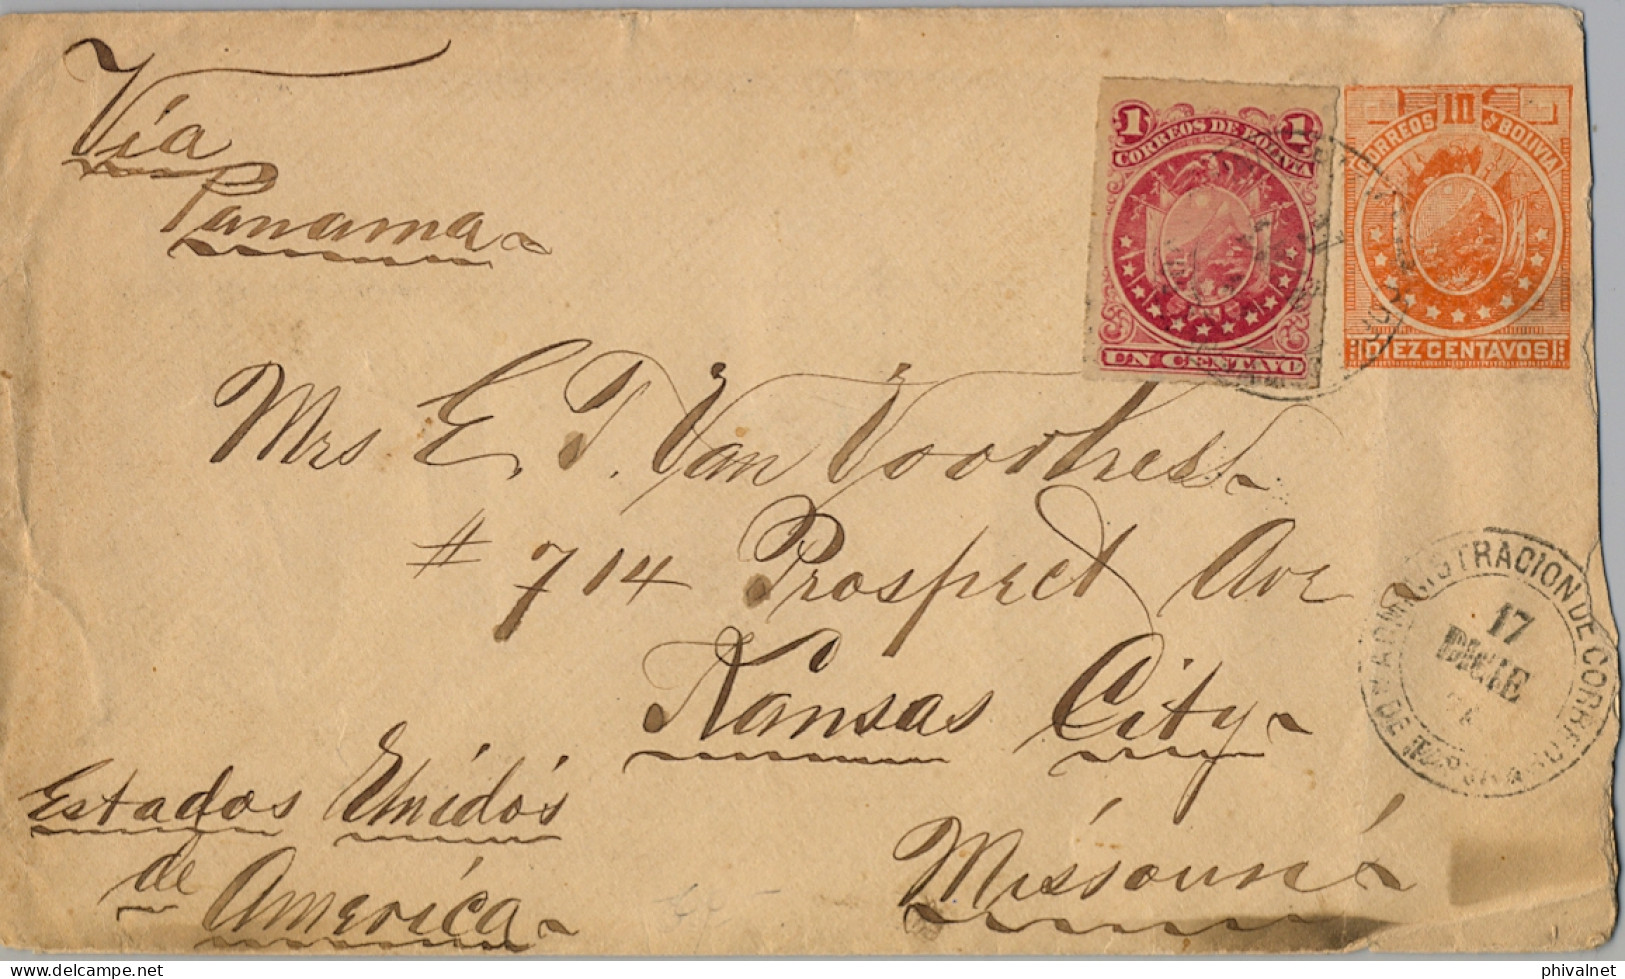 Vía
Panama
1 1
CORREOS DE BOLIVIA
UN CENTAVO
10
CORREOS DE BOLIVIA
DIEZ CENTAVOS
Mrs E. T. Van Voorhess
# 714 Prospect Ave
Kansas City
Missouri
Estados Unidos
de America
ADMINISTRACION DE CORREOS
17
DICIE
delcampe.net
phivalnet